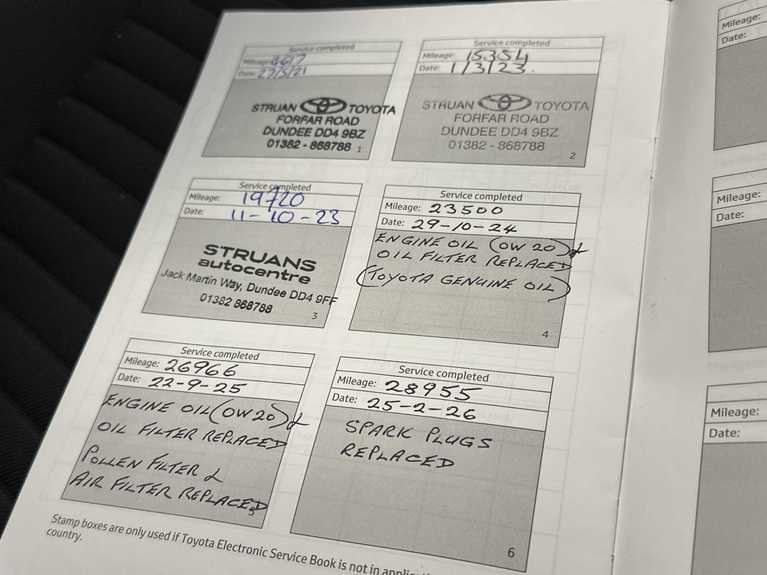 Service completed
Mileage: 8617
Date: 27/5/21
STRUAN TOYOTA
FORFAR ROAD
DUNDEE DD4 9BZ
01382 - 868788
1
Service completed
Mileage: 15354
Date: 1/3/23.
STRUAN TOYOTA
FORFAR ROAD
DUNDEE DD4 9BZ
01382 - 868788
2
Service completed
Mileage: 19720
Date: 11-10-23
STRUANS
autocentre
Jack Martin Way, Dundee DD4 9FF
01382 868788
3
Service completed
Mileage: 23500
Date: 29-10-24
ENGINE OIL (OW 20) &
OIL FILTER REPLACED
(TOYOTA GENUINE OIL)
4
Service completed
Mileage: 26966
Date: 22-9-25
ENGINE OIL (OW20) &
OIL FILTER REPLACED
POLLEN FILTER &
AIR FILTER REPLACED
5
Service completed
Mileage: 28955
Date: 25-2-26
SPARK PLUGS
REPLACED
6
Stamp boxes are only used if Toyota Electronic Service Book is not in
country.
Mileage:
Date:
Mileage:
Date:
Mileage:
Date: